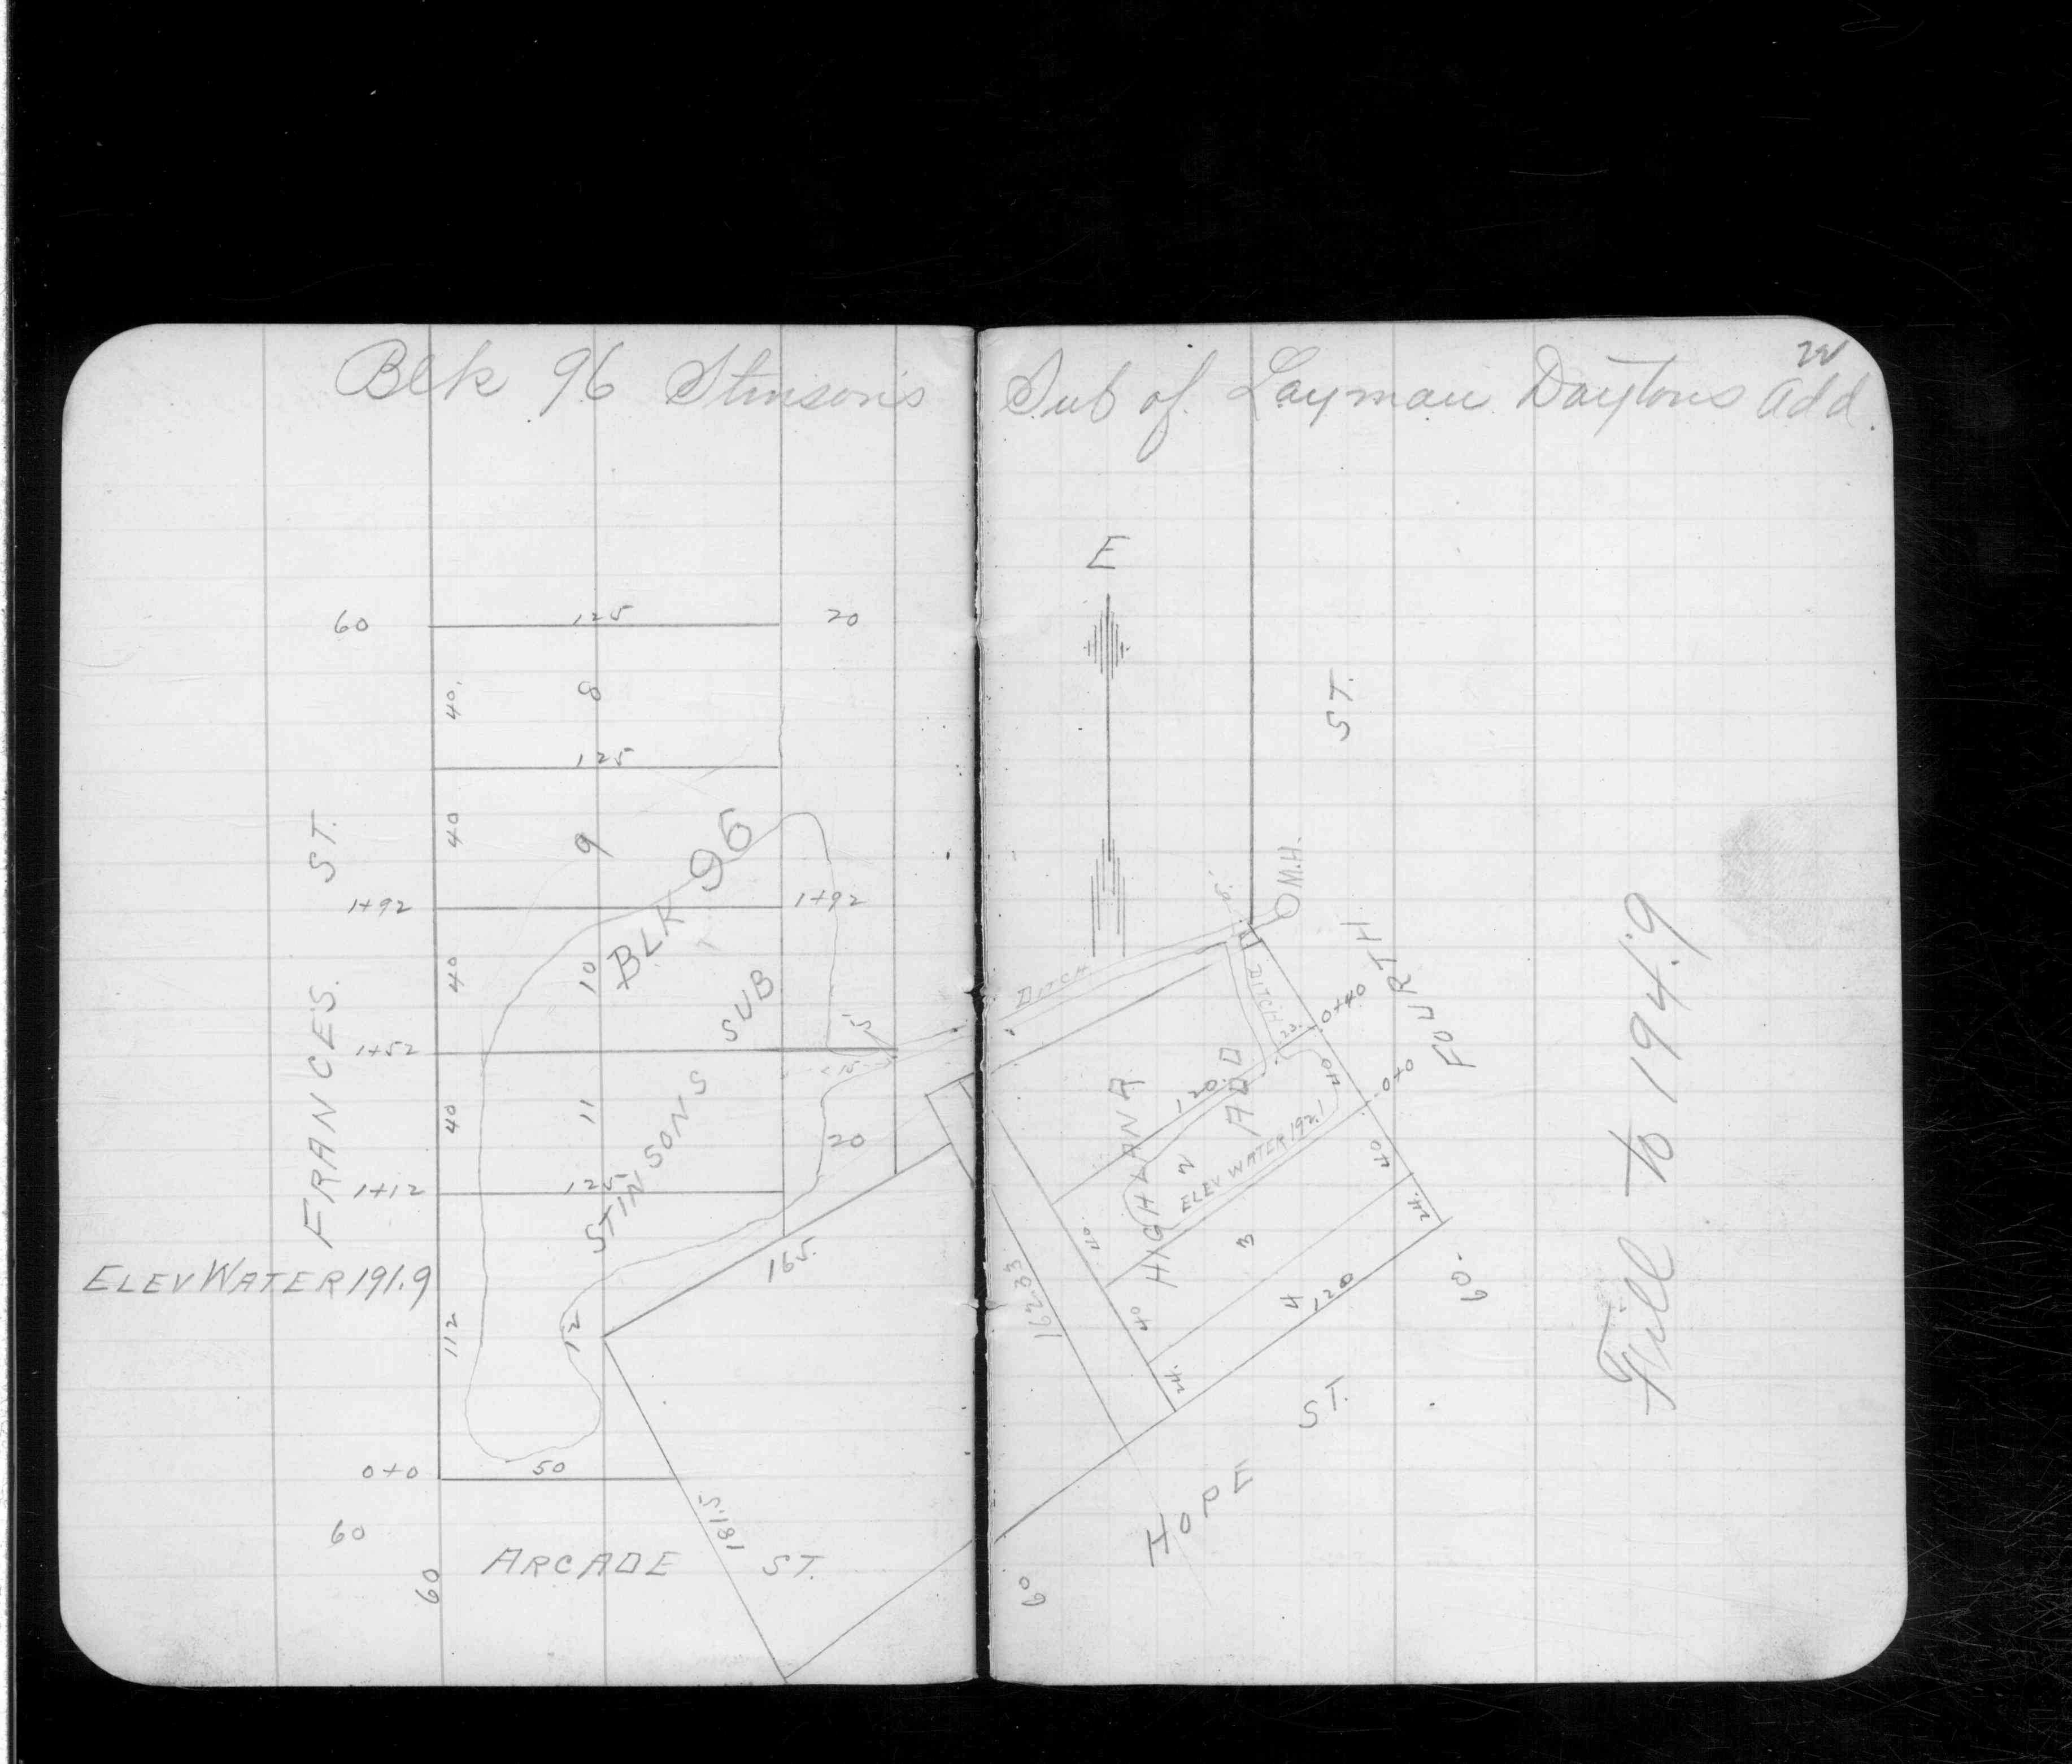 Blk 96 Stinson's Sub of Layman Dayton's Add.
60
125
20
40.
8
125
40
9
BLK 96
FRANCES. ST.
1+92
1+92
40
10
STINSONS SUB
1+52
15
15
40
11
20
1+12
125
165.
ELEV WATER 191.9
112
12
0+0
50
181.5
60
60
ARCADE ST.
E
ST.
M.H.
15.
DITCH
DITCH
FOURTH
0+40
23.
40
0+0
120.
HIGHLAND ADD
2
ELEV WATER 192.1
40
40
3
24.
162.33
40
4
120
24.
60.
HOPE ST.
60
Fill to 194.9